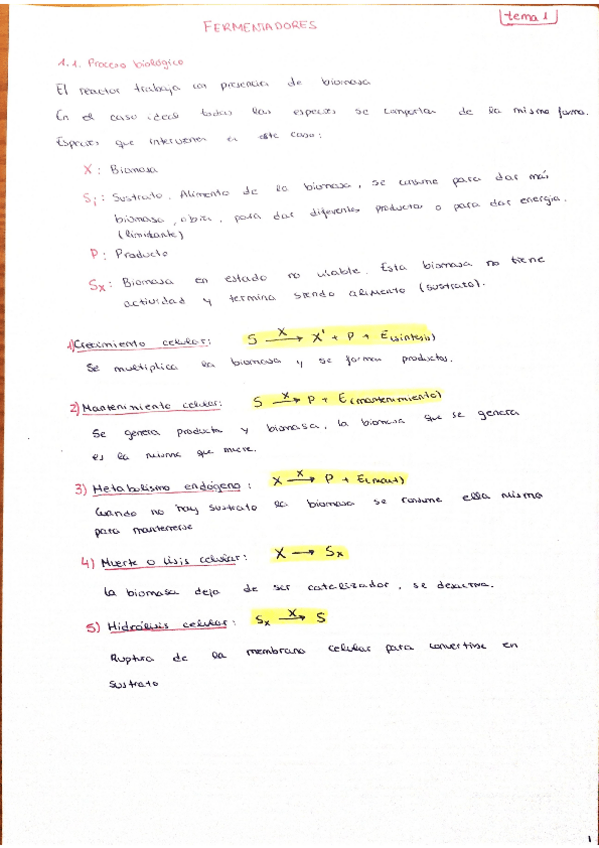 tema 1
FERMENTADORES
1.1. Proceso biológico
El reactor trabaja con presencia de biomasa
En el caso ideal todas las especies se comportan de la misma forma.
Especies que intervienen en este caso:
X: Biomasa
Si: Sustrato. Alimento de la biomasa, se consume para dar más
biomasa, para dar diferentes productos o para dar energía.
(limitante)
P: Producto
Sx: Biomasa en estado no viable. Esta biomasa no tiene
actividad y termina siendo alimento (sustrato).
1) Crecimiento celular: S —X→ X' + P + E(síntesis)
Se multiplica la biomasa y se forman productos.
2) Mantenimiento celular: S —X→ P + E(mantenimiento)
Se genera producto y biomasa, la biomasa que se genera
es la misma que muere.
3) Metabolismo endógeno: X —X→ P + E(mant)
Cuando no hay sustrato la biomasa se consume ella misma
para mantenerse
4) Muerte o lisis celular: X → Sx
La biomasa deja de ser catalizador, se desactiva.
5) Hidrólisis celular: Sx —X→ S
Ruptura de la membrana celular para convertirse en
sustrato
1